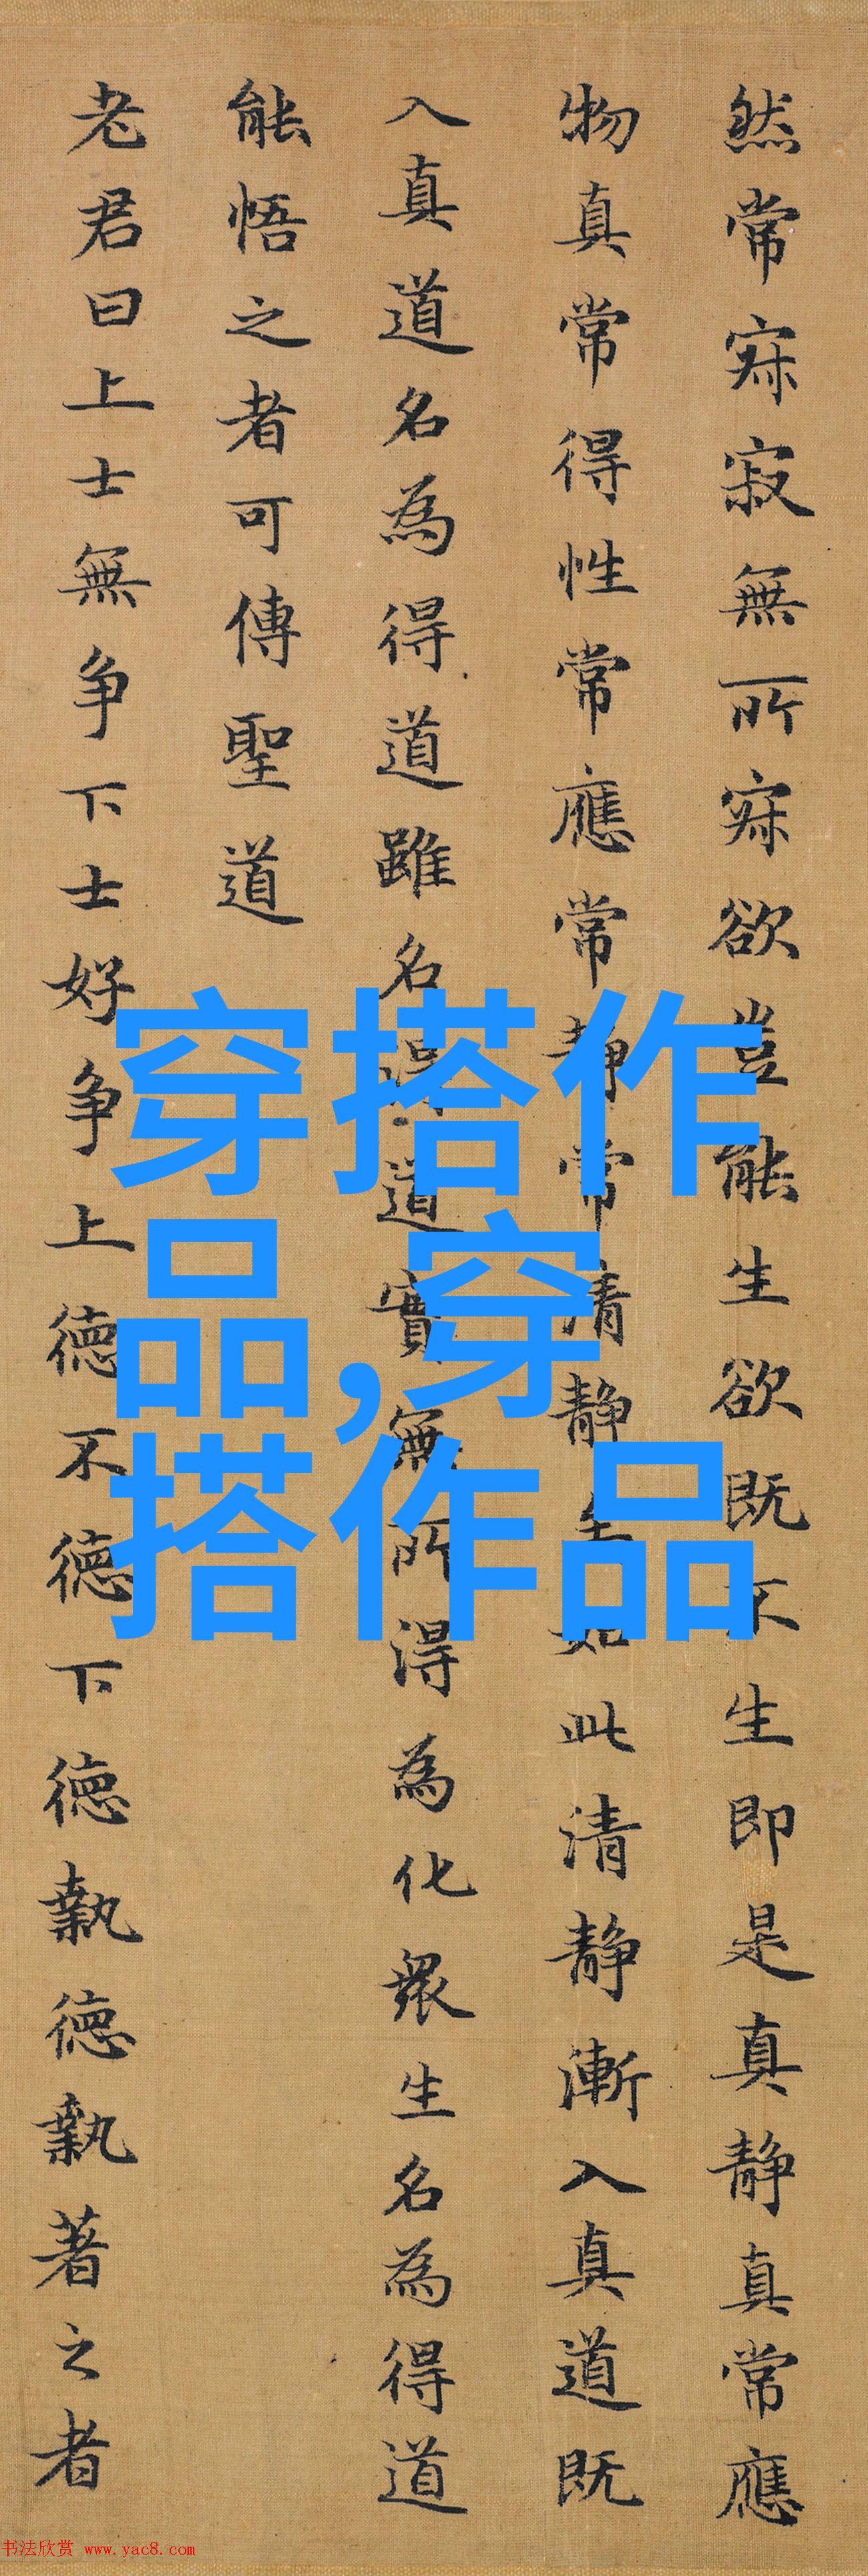 然常寂寂無所寂欲豈能生欲既不生即是真静真常應
物真常得性常應常静常清静如此清静漸入真道既
入真道名為得道雖名道實無所淂為化衆生名為得道
能悟之者可傳聖道
老君曰上士無争下士好争上德不德下德執德執著之者
穿搭作
品,穿
搭作品
书法欣赏 www.yac8.com